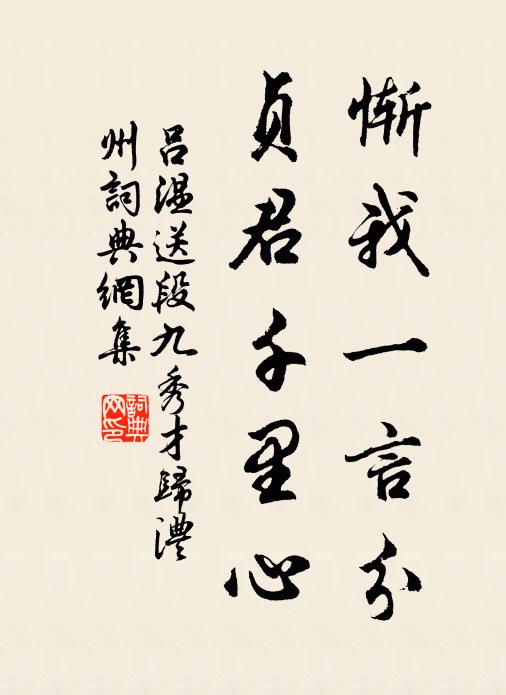 慚我一言分
貞君千里心
呂溫送段九秀才歸澧
州詞典網集
詞典
网印